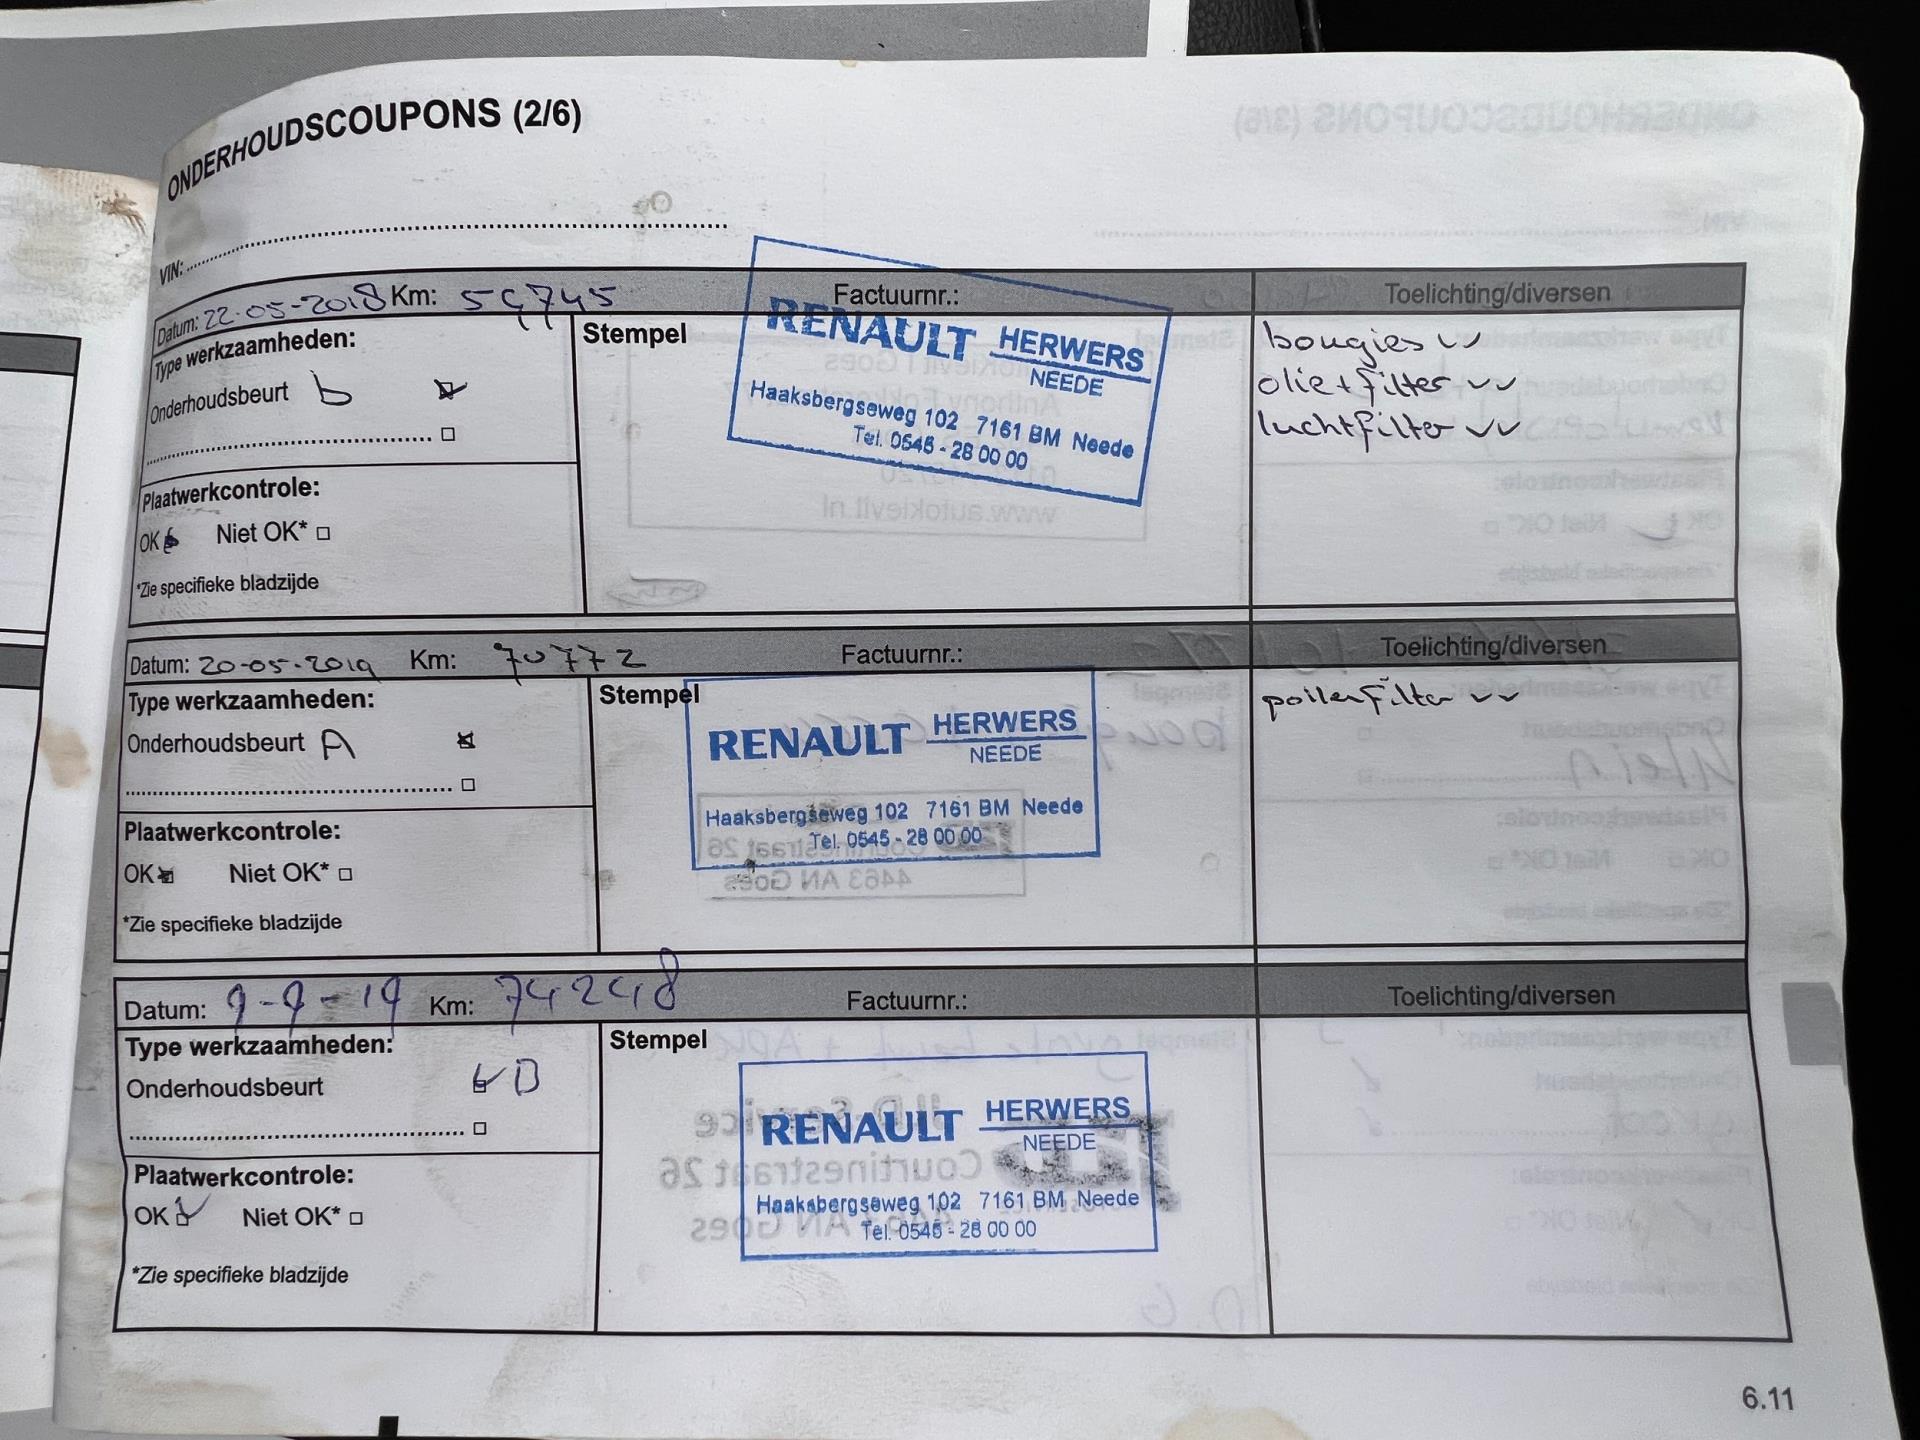 ONDERHOUDSCOUPONS (2/6)
VIN:
Datum: 22-05-2018 Km: 59745 Factuurnr.: Toelichting/diversen
Type werkzaamheden:
Onderhoudsbeurt b
Stempel
RENAULT HERWERS
NEEDE
Haaksbergseweg 102 7161 BM Neede
Tel. 0545 - 28 00 00
bougies
olie + filter
luchtfilter
Plaatwerkcontrole:
OK Niet OK*
*Zie specifieke bladzijde
Datum: 20-05-2019 Km: 70772 Factuurnr.: Toelichting/diversen
Type werkzaamheden:
Onderhoudsbeurt A
Stempel
RENAULT HERWERS
NEEDE
Haaksbergseweg 102 7161 BM Neede
Tel. 0545 - 28 00 00
pollenfilter
Plaatwerkcontrole:
OK Niet OK*
*Zie specifieke bladzijde
Datum: 9-9-19 Km: 74248 Factuurnr.: Toelichting/diversen
Type werkzaamheden:
Onderhoudsbeurt B
Stempel
RENAULT HERWERS
NEEDE
Haaksbergseweg 102 7161 BM Neede
Tel. 0545 - 28 00 00
Plaatwerkcontrole:
OK Niet OK*
*Zie specifieke bladzijde
6.11